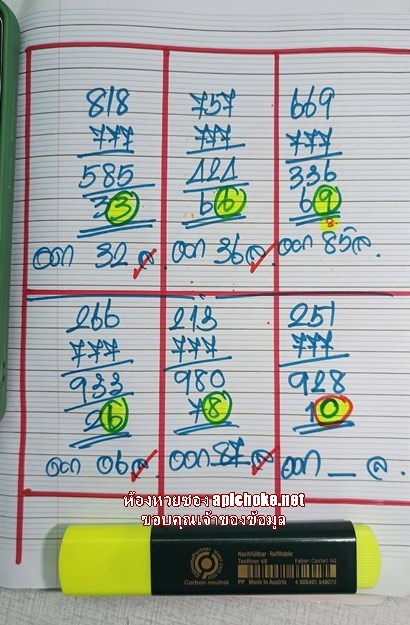 818
777
585
33
ออก 32 ล.
757
777
424
66
ออก 36 ล.
669
777
336
69
8
ออก 85 ล.
266
777
933
26
ออก 06 ล.
213
777
980
78
ออก 87 ล
251
777
928
10
ออก _ ล.
ห้องหวยซอง apichoke.net
ขอบคุณเจ้าของข้อมูล
Carbon neutral
Nachfüllbar · Refillable
Textliner 48
Faber-Castell AG
PP Made in Austria
4 005401 548073